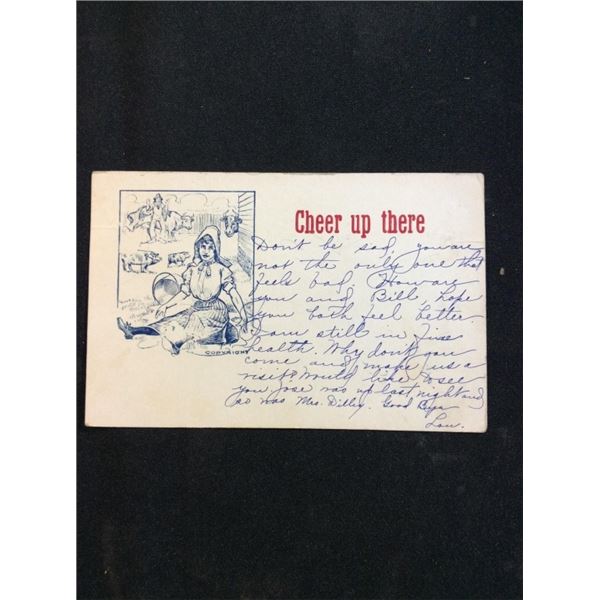 Cheer up there
Don't be sad, you are
not the only one that
feels bad. How are
you and Bill, hope
you both feel better.
I am still in fine
health. Why don't you
come and make us a
visit? Would like to see
you Jose was up last night and
so was Mrs. Dilley. Good Bye
Lou.
COPYRIGHT